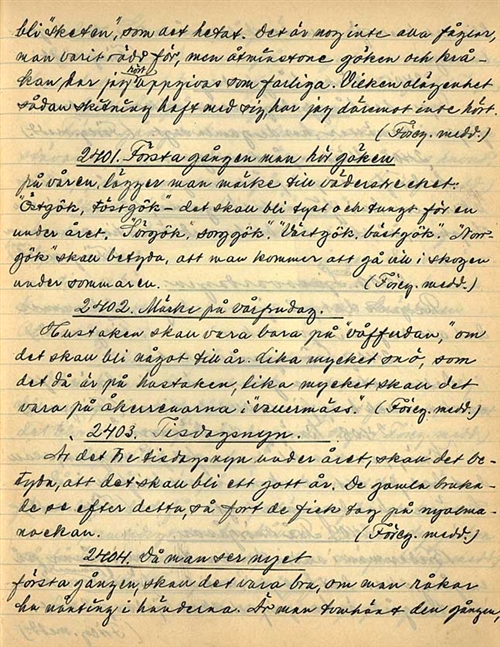 bli "sketen", som det hetat. Det är nog inte alla fåglar,
man varit rädd för, men åtminstone göken och krå-
kan har jag hört uppgivas som farliga. Vilken olägenhet
sådan skitning haft med sig har jag däremot inte hört.
(Föreg. medd.)
2401. Första gången man hör göken
på våren, lägger man märke till väderstrecket:
"Östgök, töstgök" - det skall bli tyst och tungt för en
under året. "Sörgök, sorggök". "Västgök, bästgök". "Norr-
gök" skall betyda, att man kommer att gå vill i skogen
under sommaren. (Föreg. medd.)
2402. Märke på vårfrudag.
Hustaken skall vara bara på "våffudan," om
det skall bli något till år. Lika mycket snö, som
det då är på hustaken, lika mycket skall det
vara på åkerrenarna i "valermäss". (Föreg. medd.)
2403. Tisdagsnyn.
Är det tre tisdagsnyn under året, skall det be-
tyda, att det skall bli ett gott år. De gamla bruka-
de se efter detta, så fort de fick tag på nyalma-
nackan. (Föreg. medd.)
2404. Då man ser nyet
första gången, skall det vara bra, om man råkar
ha nånting i händerna. Är man tomhänt den gången,